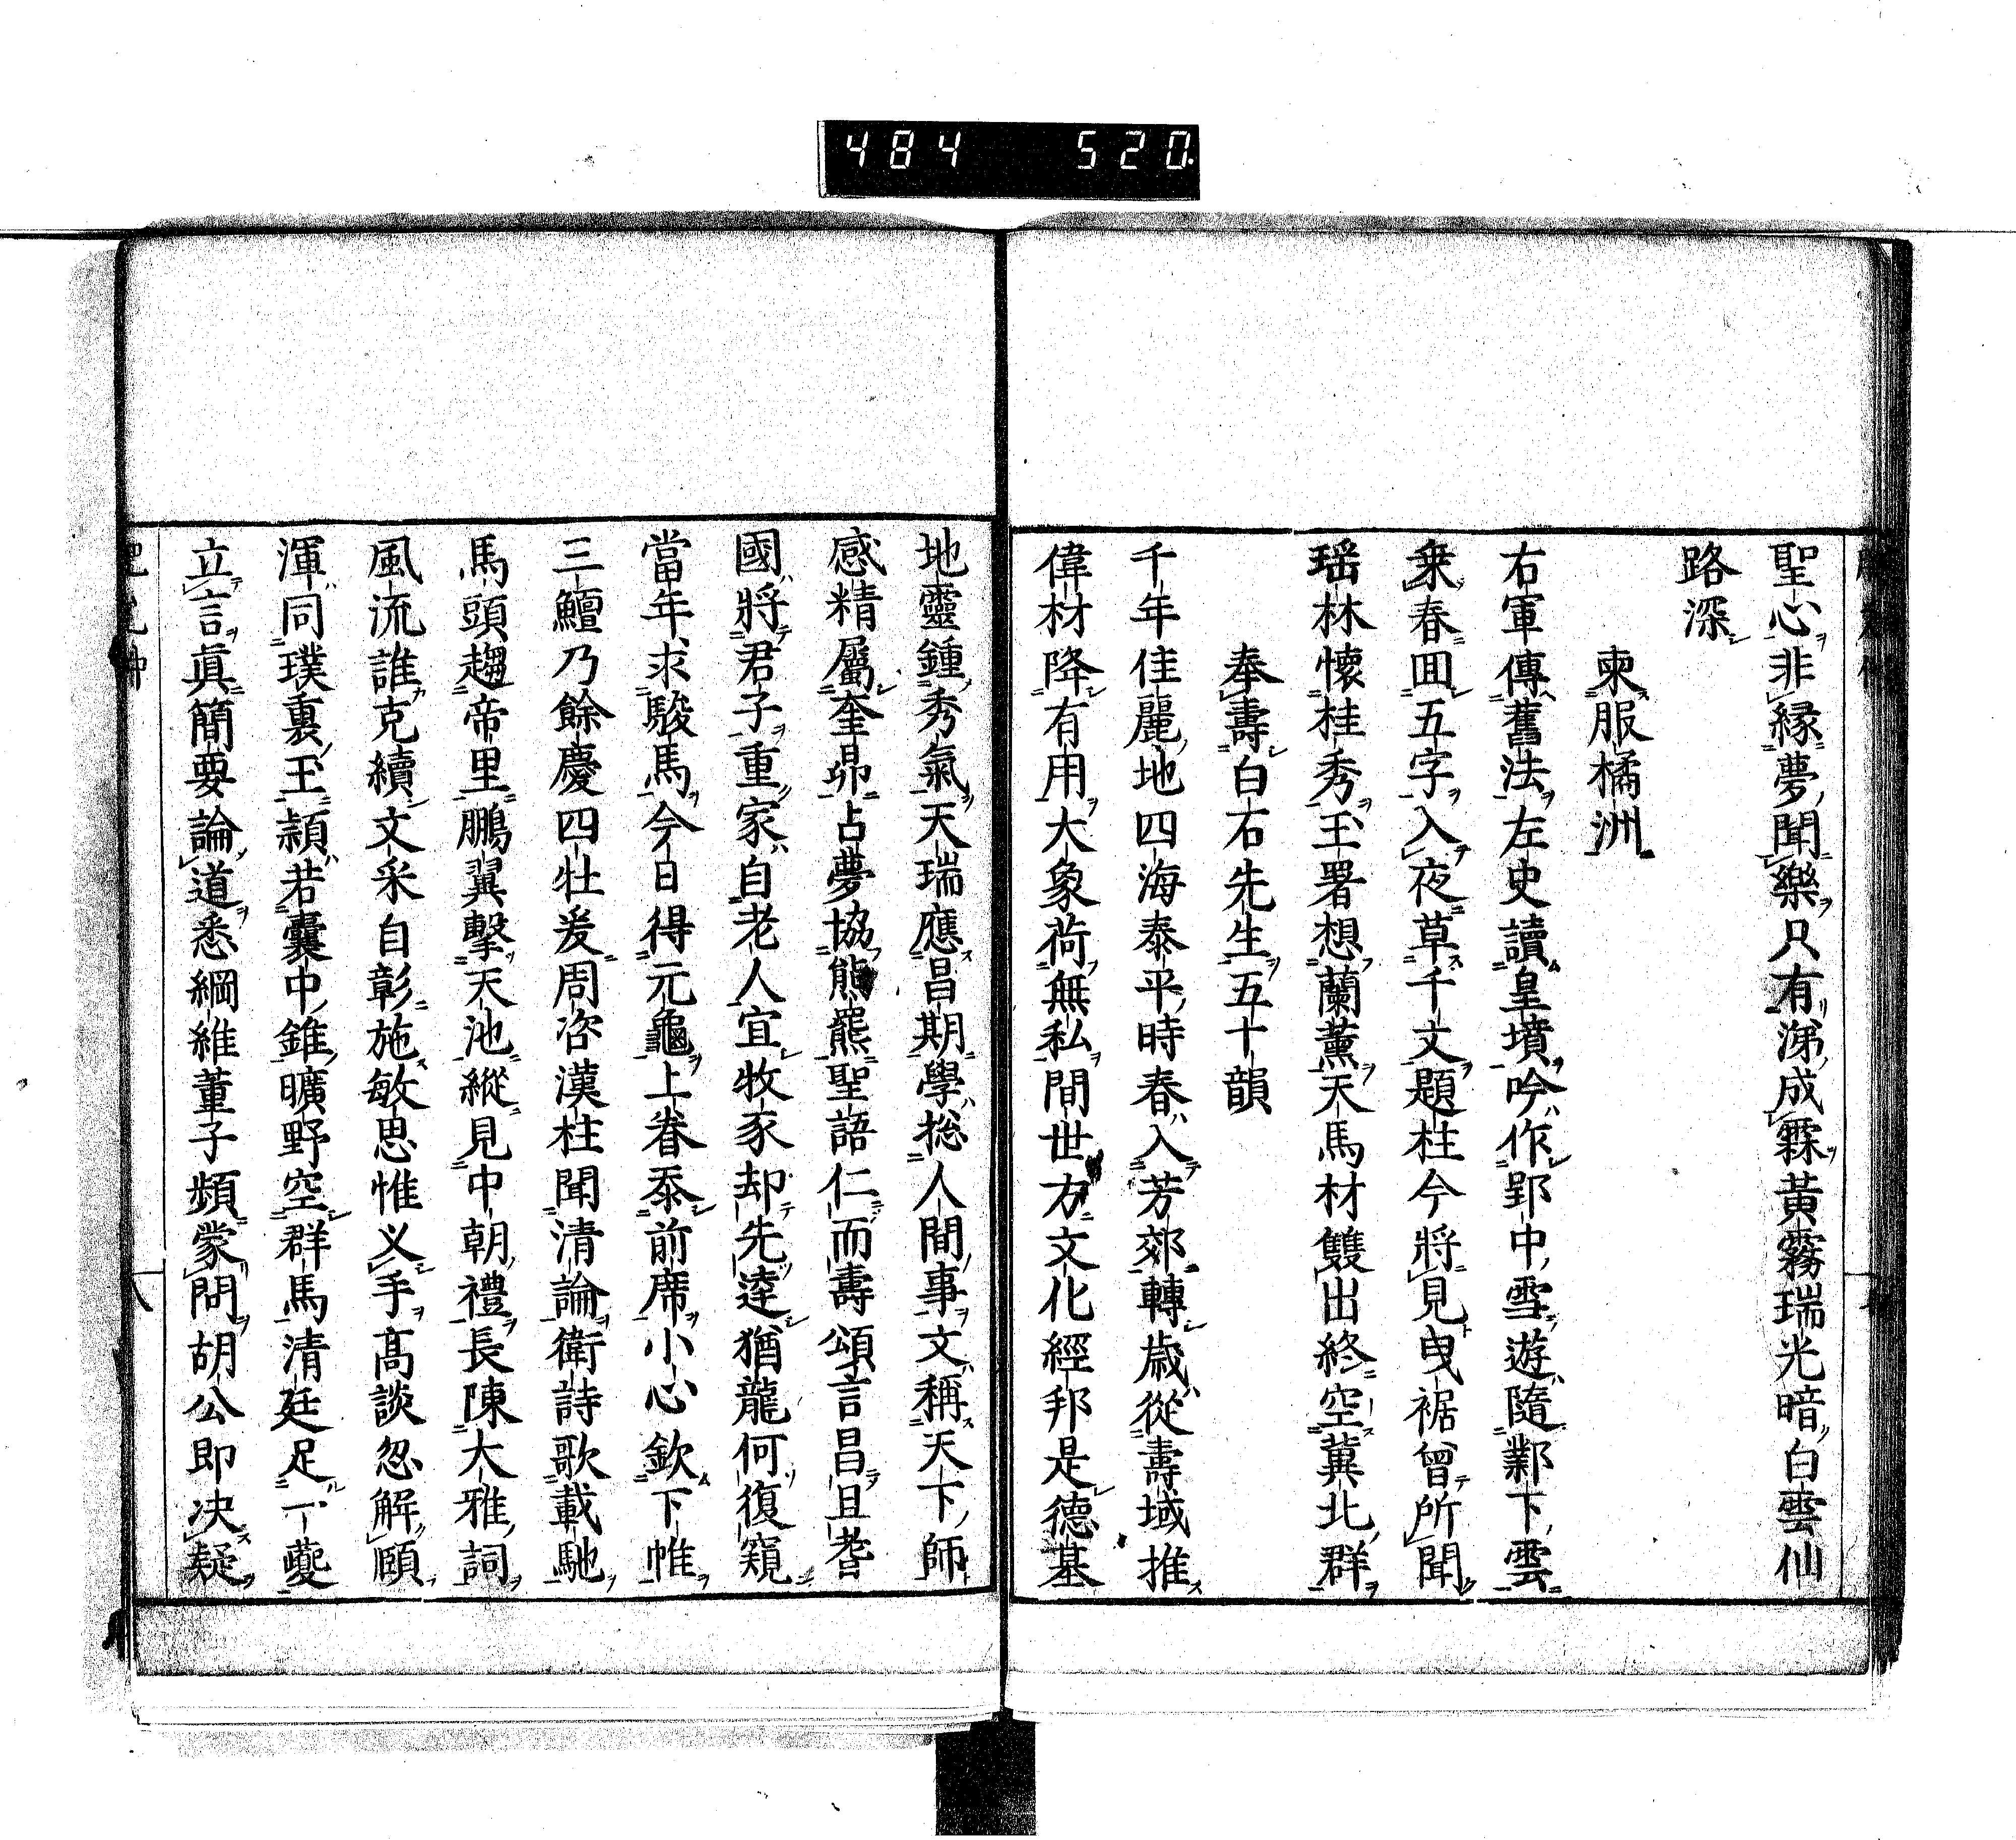 484 520
聖心非緣夢聞樂只有涕成霖黃霧瑞光暗白雲仙
路深
柬服橘洲
右軍傳舊法左史讀皇墳吟作郢中雪遊隨鄴下雲
乘春回五字入夜草千文題柱今將見曳裾曾所聞
瑶林懷桂秀玉署想蘭薰天馬材雙出終空冀北群
奉壽白石先生五十韻
千年佳麗地四海泰平時春入芳郊轉歲從壽域推
偉材降有用大象荷無私間世方文化經邦是德基
地靈鍾秀氣天瑞應昌期學揔人間事文稱天下師
感精屬奎昴占夢協熊羆聖語仁而壽頌言昌且耆
國將君子重家自老人宜牧豕却先逹猶龍何復窺
當年求駿馬今日得元龜上眷忝前席小心欽下帷
三鱣乃餘慶四牡爰周咨漢柱聞清論衛詩歌載馳
馬頭趨帝里鵬翼擊天池縱見中朝禮長陳大雅詞
風流誰克續文采自彰施敏思惟义手高談忽解頤
渾同璞裏玉穎若囊中錐曠野空群馬清廷足一夔
立言真簡要論道悉綱維董子頻蒙問胡公即决疑
八